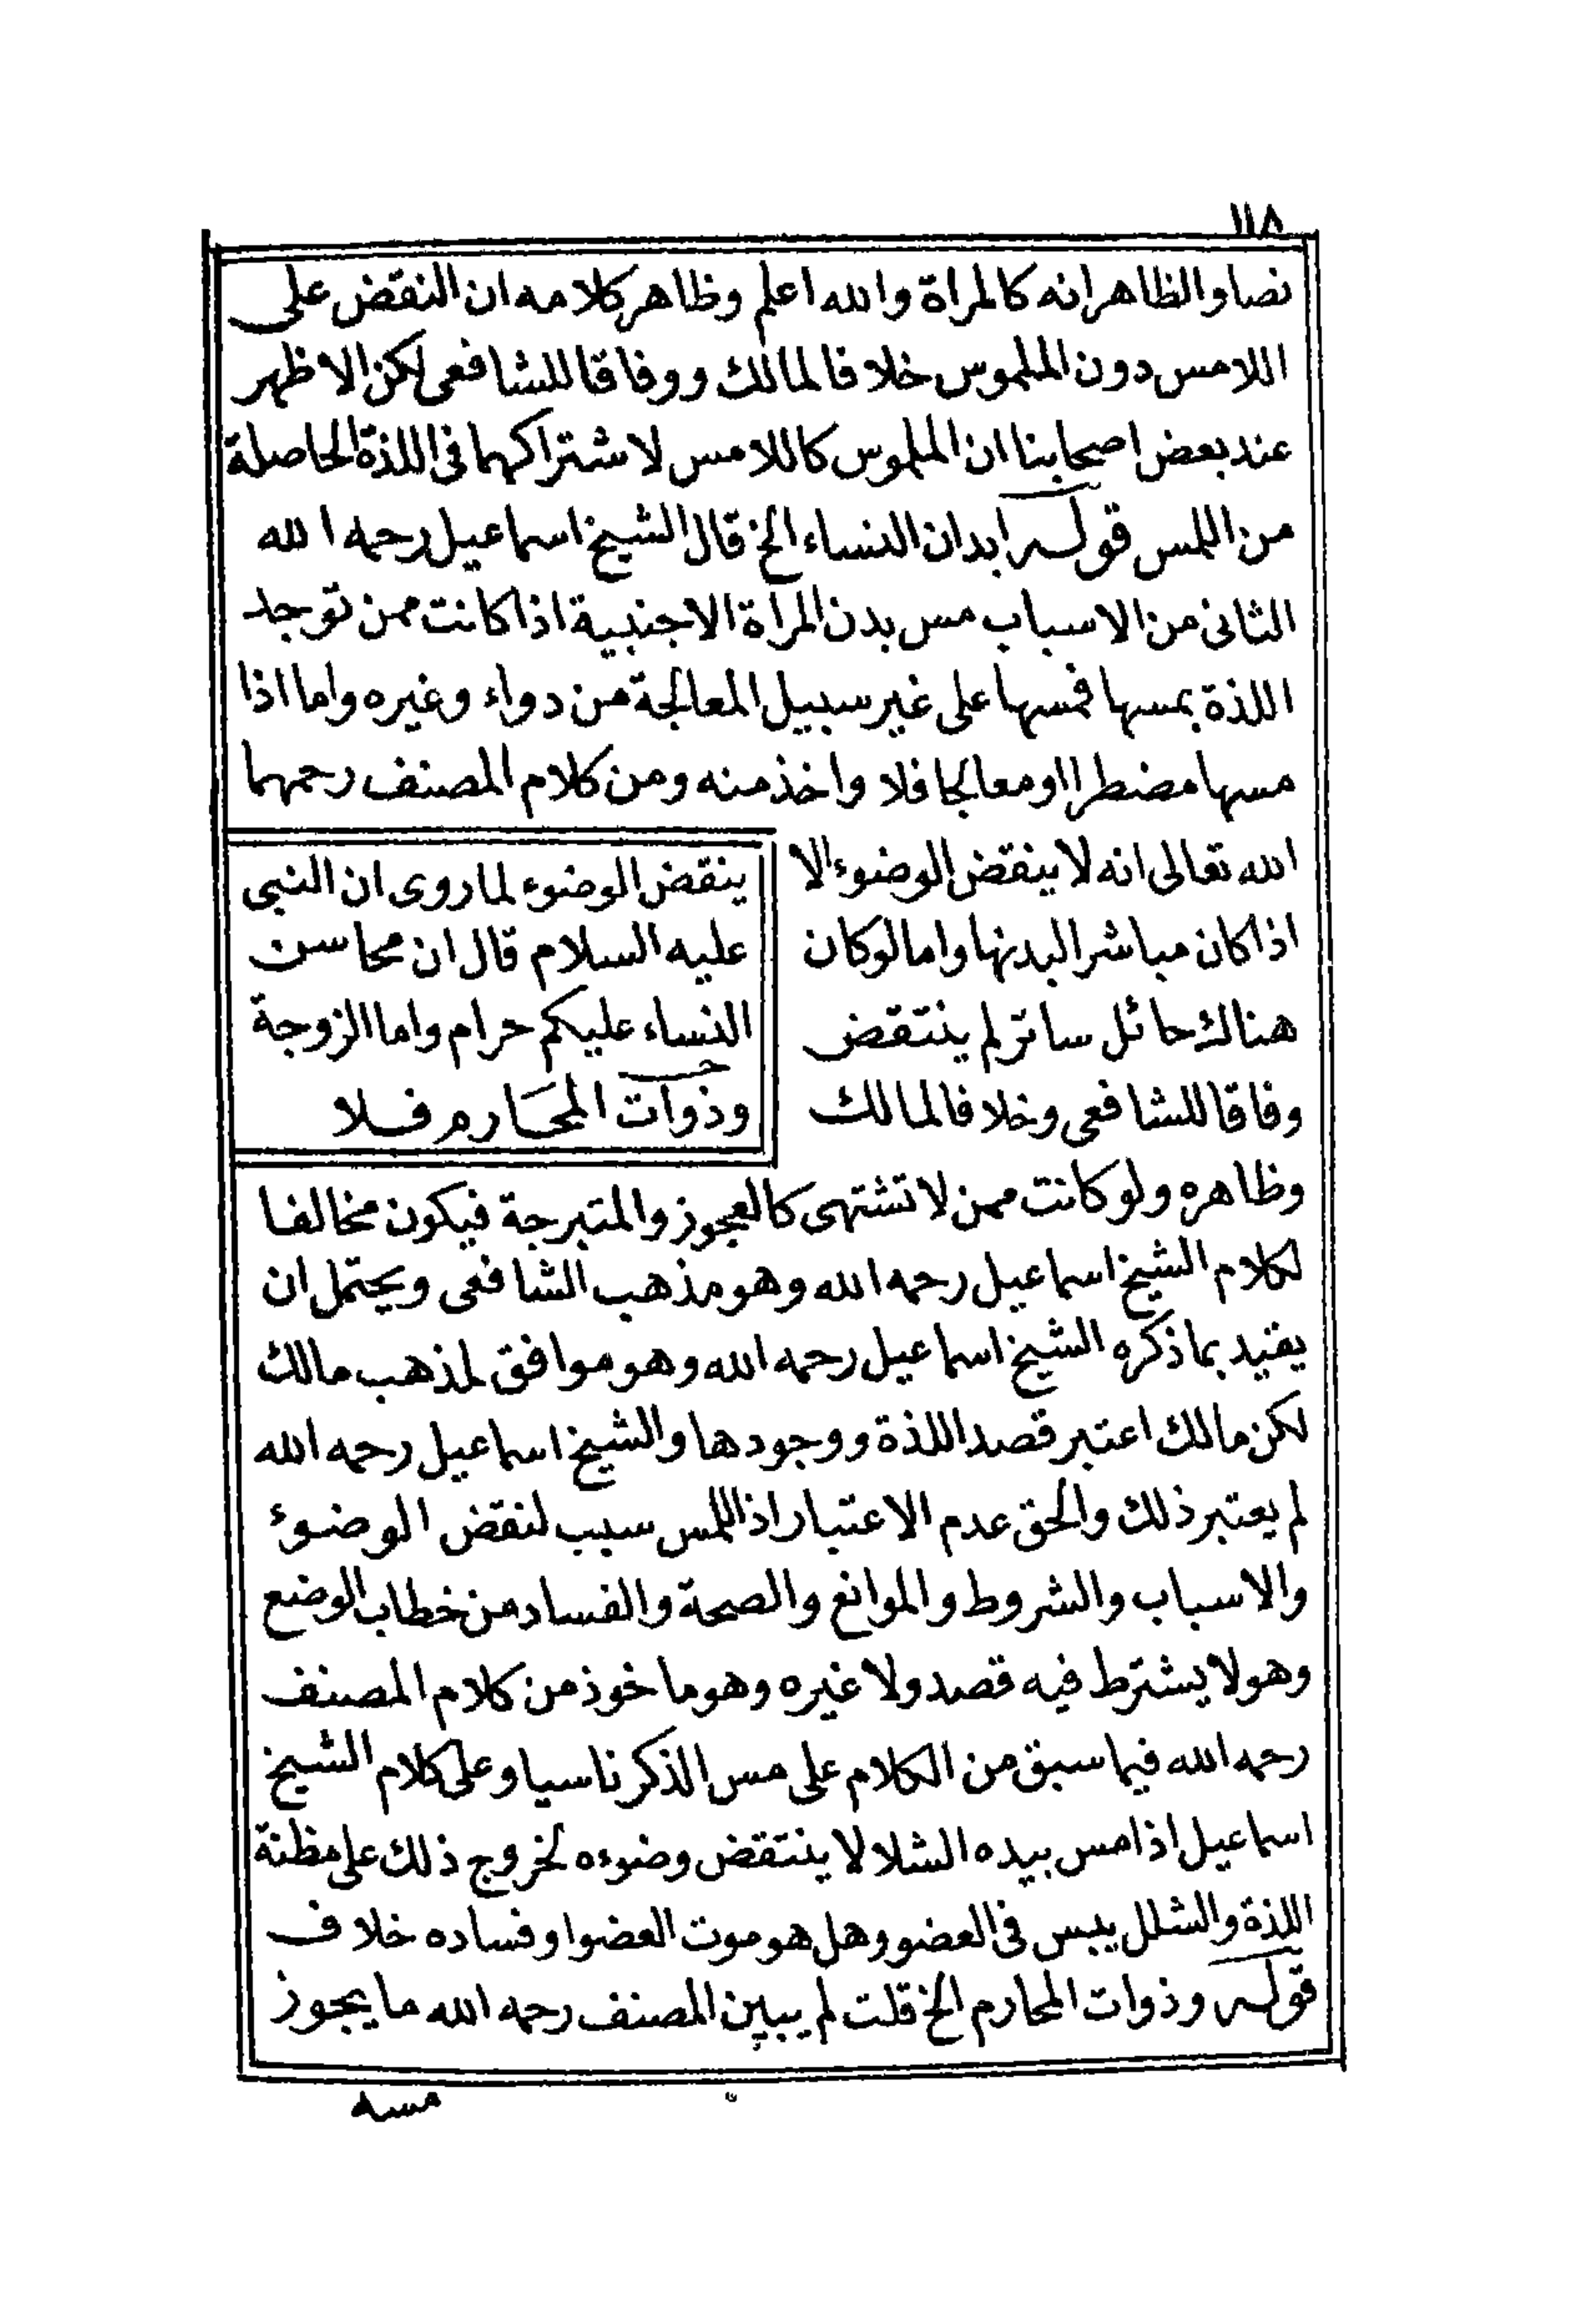 ١١٨
نصا والظاهر انه كالمراة والله اعلم وظاهر كلامه ان النقض على
اللامس دون الملموس خلافا لمالك ووفاقا للشافعى لكن الاظهر
عند بعض اصحابنا ان الملموس كاللامس لاشتراكهما فى اللذة الحاصلة
من اللمس قوله ابدان النساء الخ قال الشيخ اسماعيل رحمه الله
الثانى من الاسباب مس بدن المراة الاجنبية اذا كانت ممن توجد
اللذة بمسها فمسها على غير سبيل المعالجة من دواء وغيره واما اذا
مسها مضطرا او معالجا فلا واخذ منه ومن كلام المصنف رحمهما
الله تعالى انه لا ينقض الوضوء الا
اذا كان مباشرا لبدنها واما لو كان
هناك حائل ساتر لم ينتقض
وفاقا للشافعى وخلافا لمالك
ينقض الوضوء لما روى ان النبى
عليه السلام قال ان محاسن
النساء عليكم حرام واما الزوجة
وذوات المحارم فلا
وظاهره ولو كانت ممن لا تشتهى كالعجوز والمتبرجة فيكون مخالفا
لكلام الشيخ اسماعيل رحمه الله وهو مذهب الشافعى ويحتمل ان
يقيد بما ذكره الشيخ اسماعيل رحمه الله وهو موافق لمذهب مالك
لكن مالك اعتبر قصد اللذة ووجودها والشيخ اسماعيل رحمه الله
لم يعتبر ذلك والحق عدم الاعتبار اذ اللمس سبب لنقض الوضوء
والاسباب والشروط والموانع والصحة والفساد من خطاب الوضع
وهو لا يشترط فيه قصد ولا غيره وهو ماخوذ من كلام المصنف
رحمه الله فيما سبق من الكلام على مس الذكر ناسيا وعلى كلام الشيخ
اسماعيل اذا مس بيده الشلا لا ينتقض وضوءه لخروج ذلك على مظنة
اللذة والشلل يبس فى العضو وهل هو موت العضو او فساده خلاف
قوله وذوات المحارم الخ قلت لم يبين المصنف رحمه الله ما يجوز
مسه